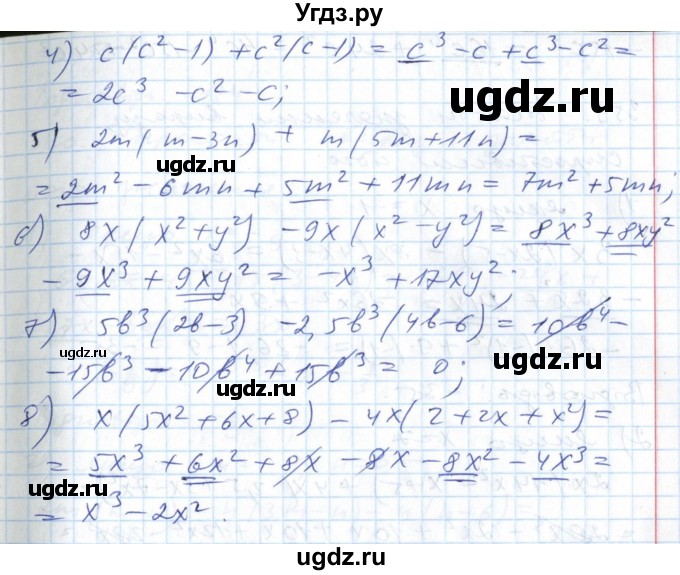 Угдз.ру
4) c(c² - 1) + c²(c - 1) = c³ - c + c³ - c² =
= 2c³ - c² - c;
ugdz.ru
5) 2m(m - 3n) + m(5m + 11n) =
ugdz.ru
= 2m² - 6mn + 5m² + 11mn = 7m² + 5mn;
6) 8x(x² + y²) - 9x(x² - y²) = 8x³ + 8xy²
- 9x³ + 9xy² = -x³ + 17xy².
ugdz.ru
7) 5b³(2b - 3) - 2,5b³(4b - 6) = 10b⁴ -
ugdz.ru
- 15b³ - 10b⁴ + 15b³ = 0;
ugdz.ru
8) x(5x² + 6x + 8) - 4x(2 + 2x + x²) =
= 5x³ + 6x² + 8x - 8x - 8x² - 4x³ =
ugdz.ru
ugdz.ru
= x³ - 2x².
ugdz.ru